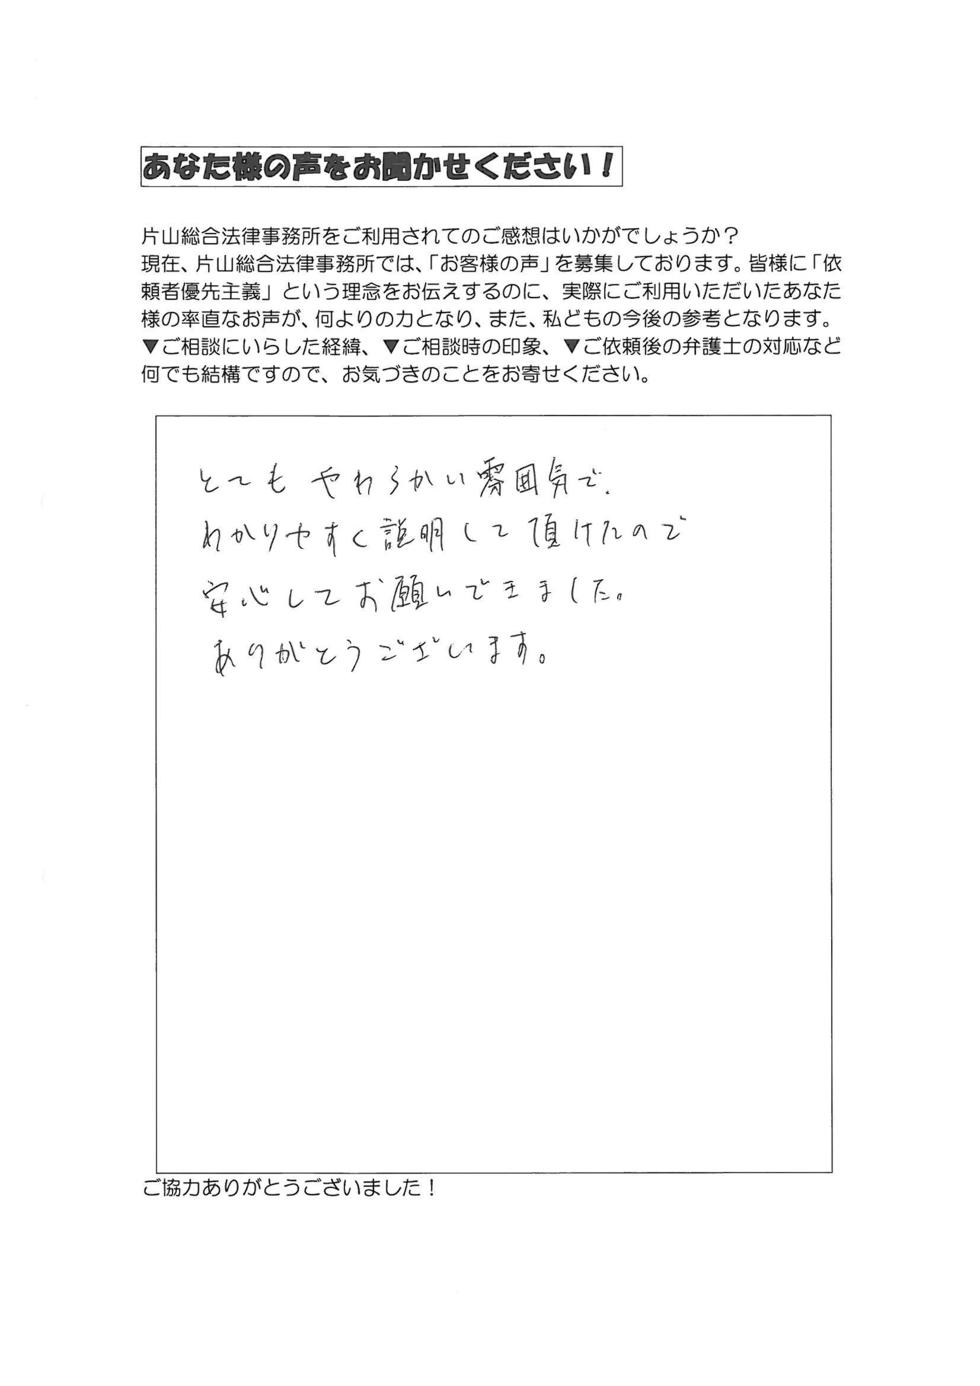 あなた様の声をお聞かせください！
片山総合法律事務所をご利用されてのご感想はいかがでしょうか？
現在、片山総合法律事務所では、「お客様の声」を募集しております。皆様に「依
頼者優先主義」という理念をお伝えするのに、実際にご利用いただいたあなた
様の率直なお声が、何よりの力となり、また、私どもの今後の参考となります。
▼ご相談にいらした経緯、▼ご相談時の印象、▼ご依頼後の弁護士の対応など
何でも結構ですので、お気づきのことをお寄せください。
とてもやわらかい雰囲気で、
わかりやすく説明して頂けたので
安心してお願いできました。
ありがとうございます。
ご協力ありがとうございました！